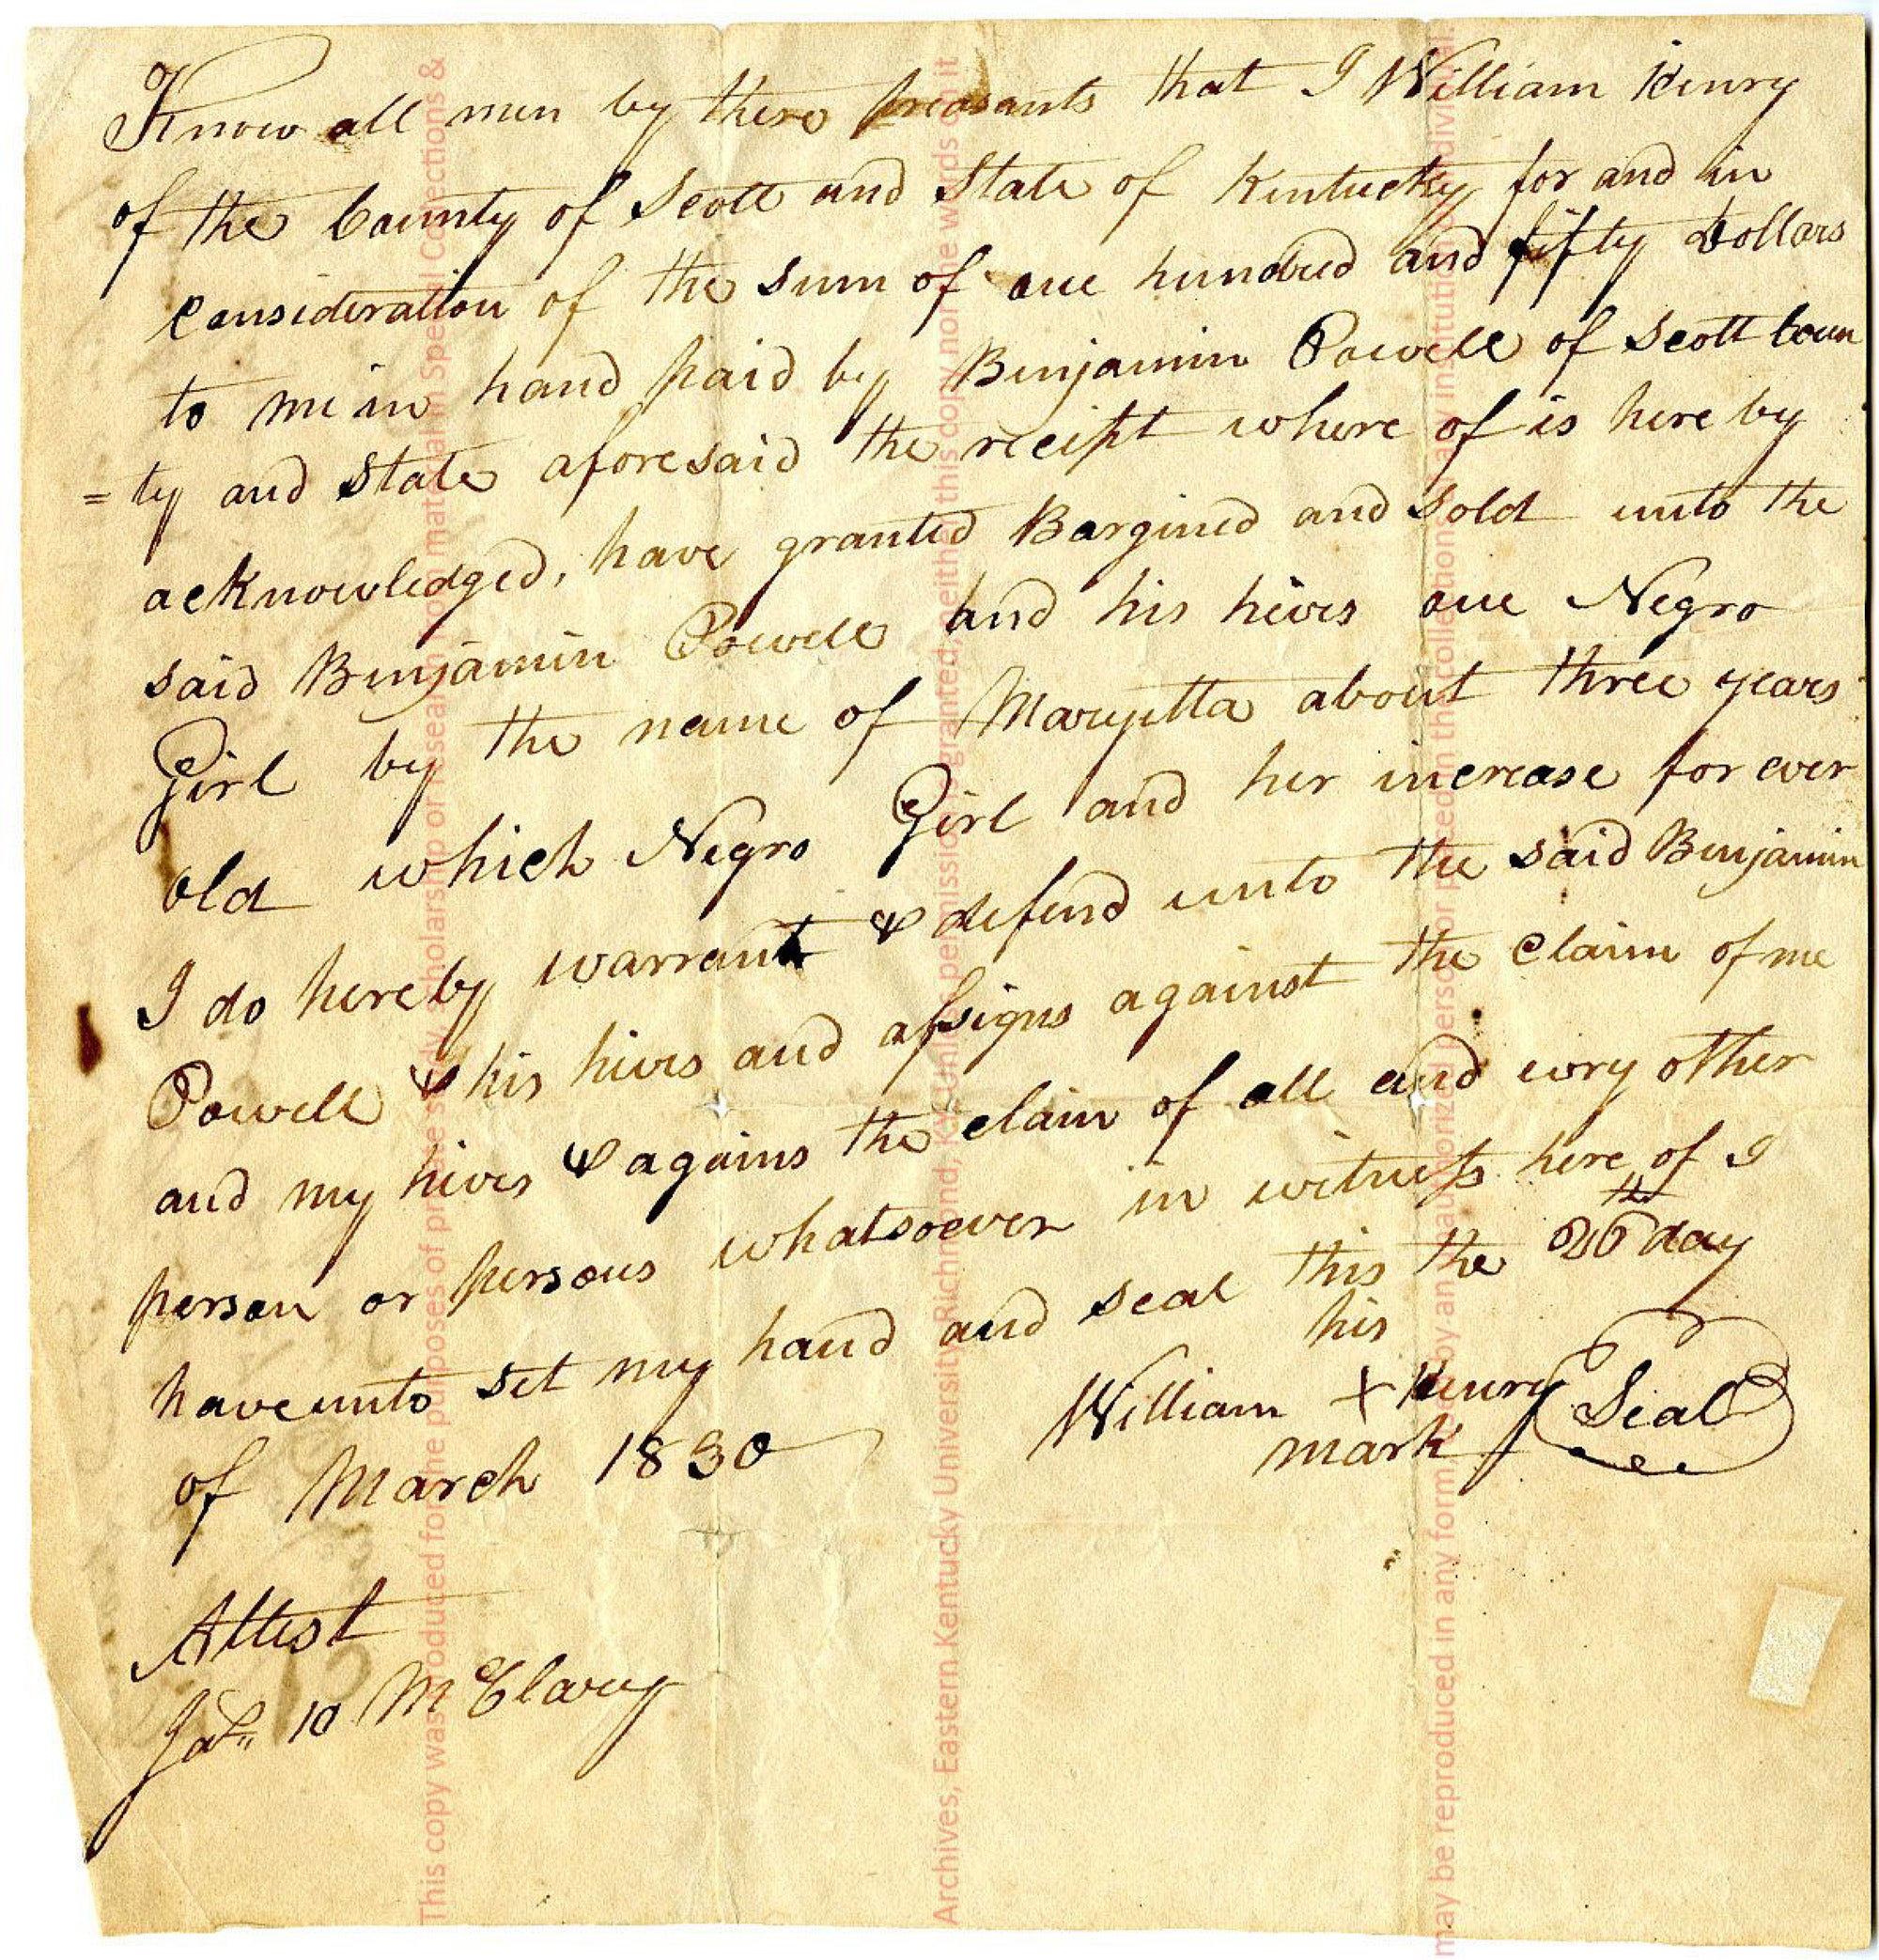 Know all men by these preasants that I William Henry
of the County of Scott and State of Kentucky for and in
consideration of the sum of one hundred and fifty Dollars
to me in hand paid by Benjamin Powell of Scott Coun
=ty and State aforesaid the receipt where of is here by
acknowledged, have granted Bargined and sold unto the
said Benjamin Powell and his hires one Negro
Girl by the name of Maryetta about three years
old which Negro Girl and her increase for ever
I do hereby warrant & defend unto the said Benjamin
Powell & his hires and assigns against the claim of me
and my hires & agains the claim of all and evry other
person or persons whatsoever in witness here of I
have unto set my hand and seal this the 26th day
of March 1830
his
William + Henry Seal
mark
Attest
McClary
This copy was produced for the purposes of private study, scholarship or research from material in Special Collections &
Archives, Eastern Kentucky University, Richmond, KY. Unless permission is granted, neither this copy nor the words on it
may be reproduced in any form by an unauthorized person or placed in the collections of any institution or individual.